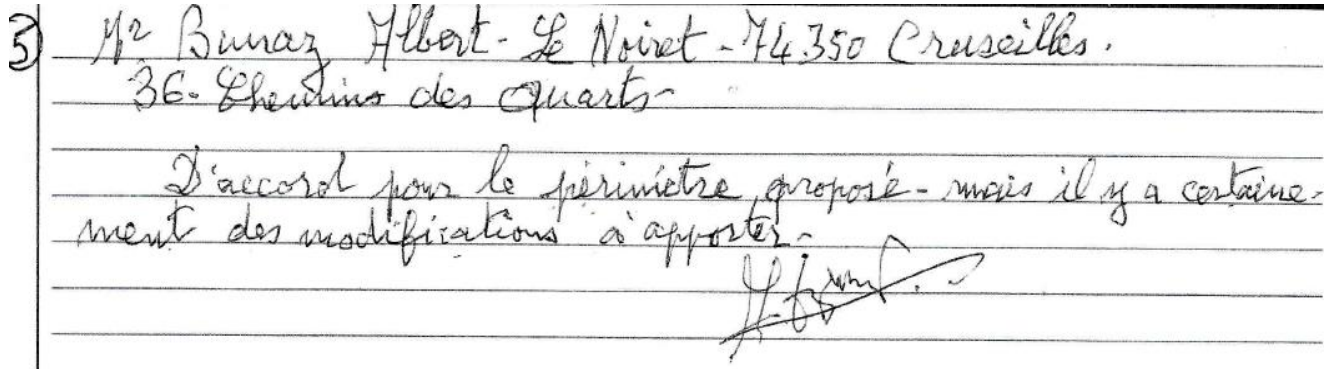 5) Mr Bunaz Albert - Le Noiret - 74350 Cruseilles.
36 - Chemins des Quarts -
D'accord pour le périmètre proposé - mais il y a certaine-
ment des modifications à apporter -